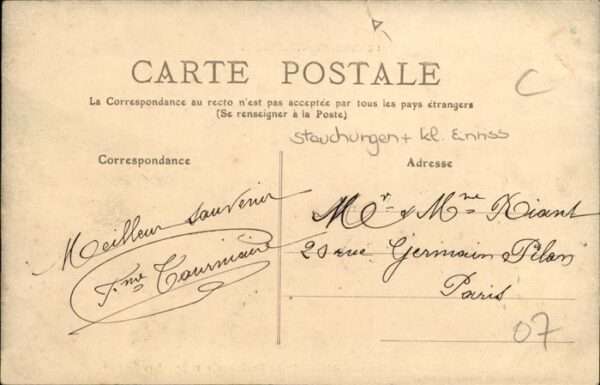 CARTE POSTALE
C
La Correspondance au recto n'est pas acceptée par tous les pays étrangers
(Se renseigner à la Poste)
Stauchungen + kl. Einriss
Correspondance
Adresse
Meilleur souvenir
Mr & Mme Niant
20 rue Germain Pilon
Paris
07